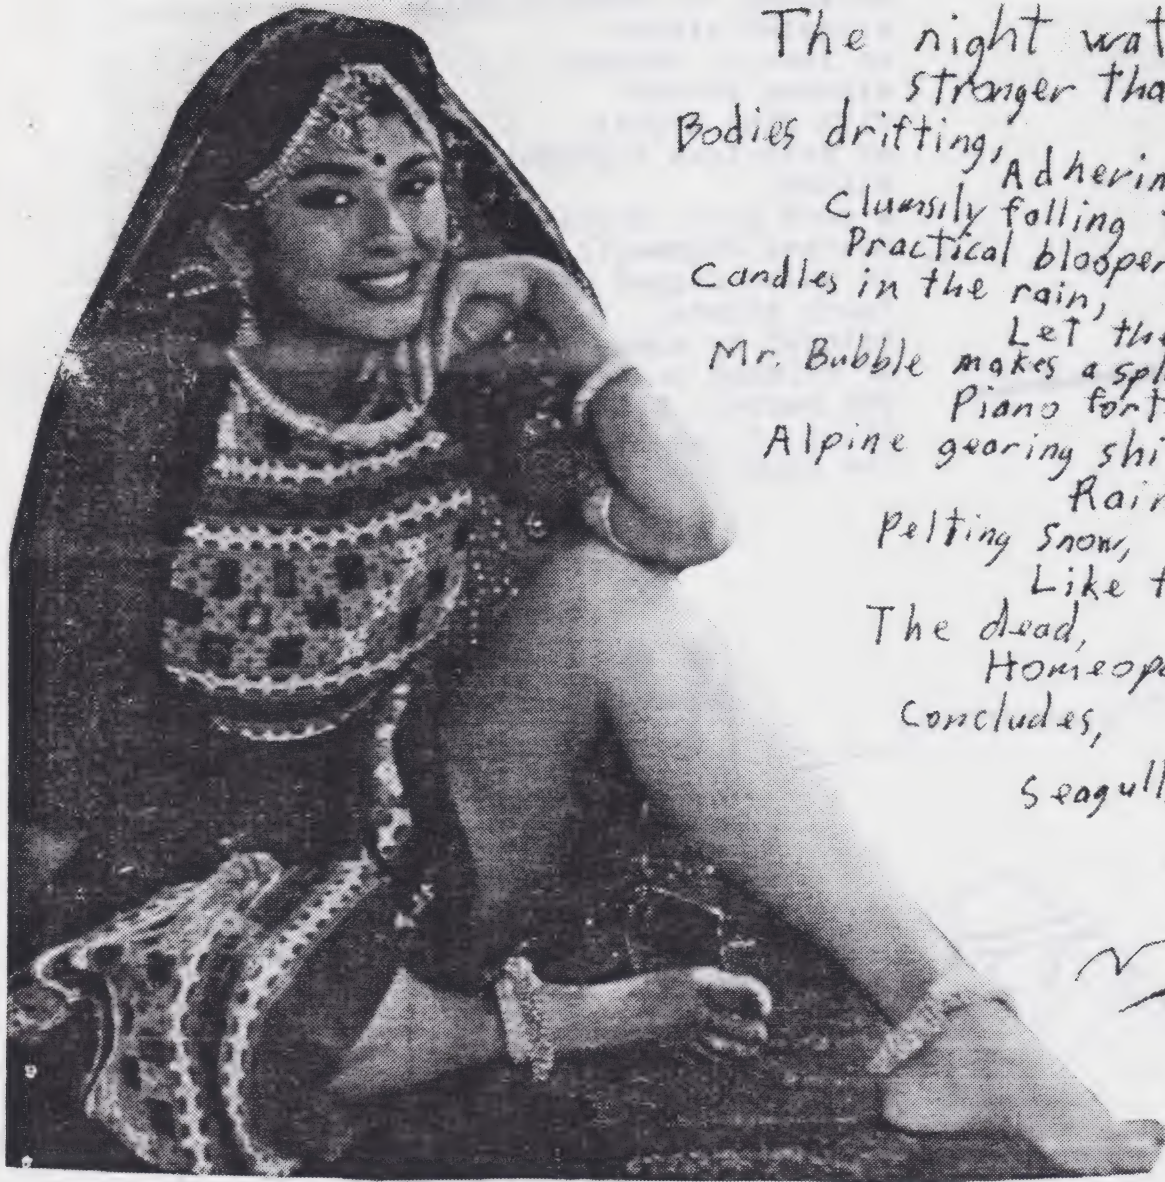 The night wat
stronger tha
Bodies drifting,
Adherin
Clumsily falling
Practical blooper
Candles in the rain,
Let the
Mr. Bubble makes a spl
Piano fort
Alpine gearing shi
Rain
Pelting Snow,
Like t
The dead,
Homeopa
Concludes,
Seagull